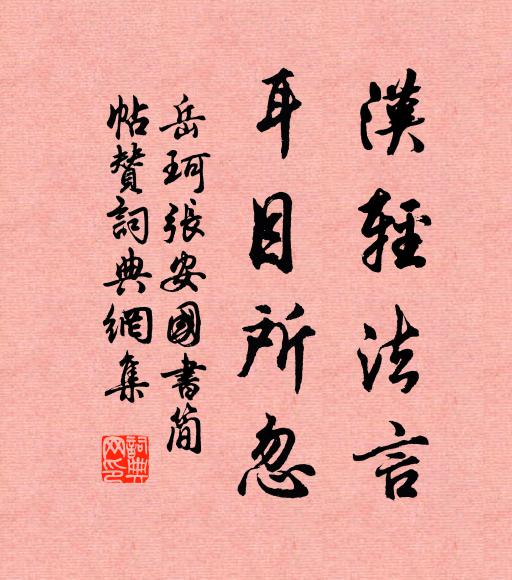 漢輕法言
耳目所忽
岳珂張安國書簡
帖贊詞典網集
詞典
网印